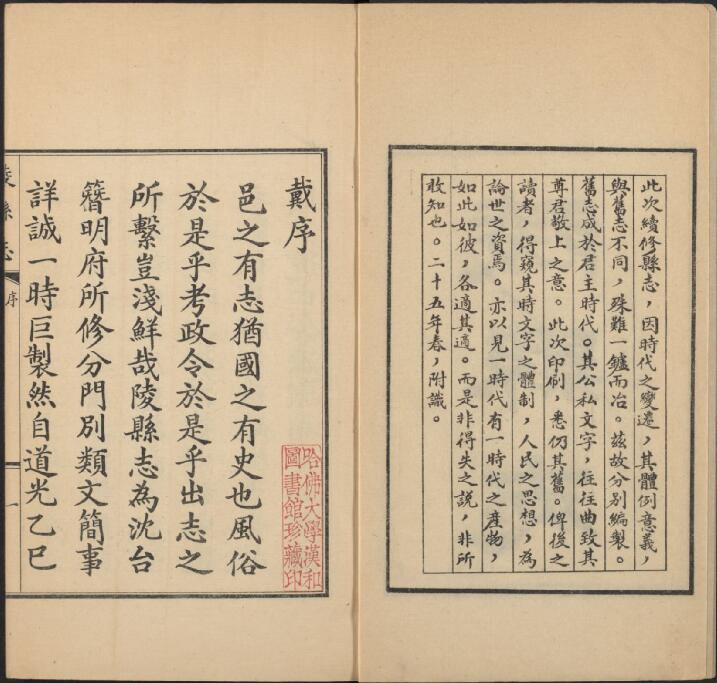 此次續修縣志，因時代之變遷，其體例意義，
與舊志不同，殊難一鑪而冶。茲故分別編製。
舊志成於君主時代。其公私文字，往往曲致其
尊君敬上之意。此次印刷，悉仍其舊。俾後之
讀者，得窺其時文字之體制，人民之思想，為
論世之資焉。亦以見一時代有一時代之產物，
如此如彼，各適其適。而是非得失之說，非所
敢知也。二十五年春，附識。
戴序
邑之有志猶國之有史也風俗
於是乎考政令於是乎出志之
所繫豈淺鮮哉陵縣志為沈台
簪明府所修分門別類文簡事
詳誠一時巨製然自道光乙巳
陵縣志
序
一
哈佛大學漢和
圖書館珍藏印